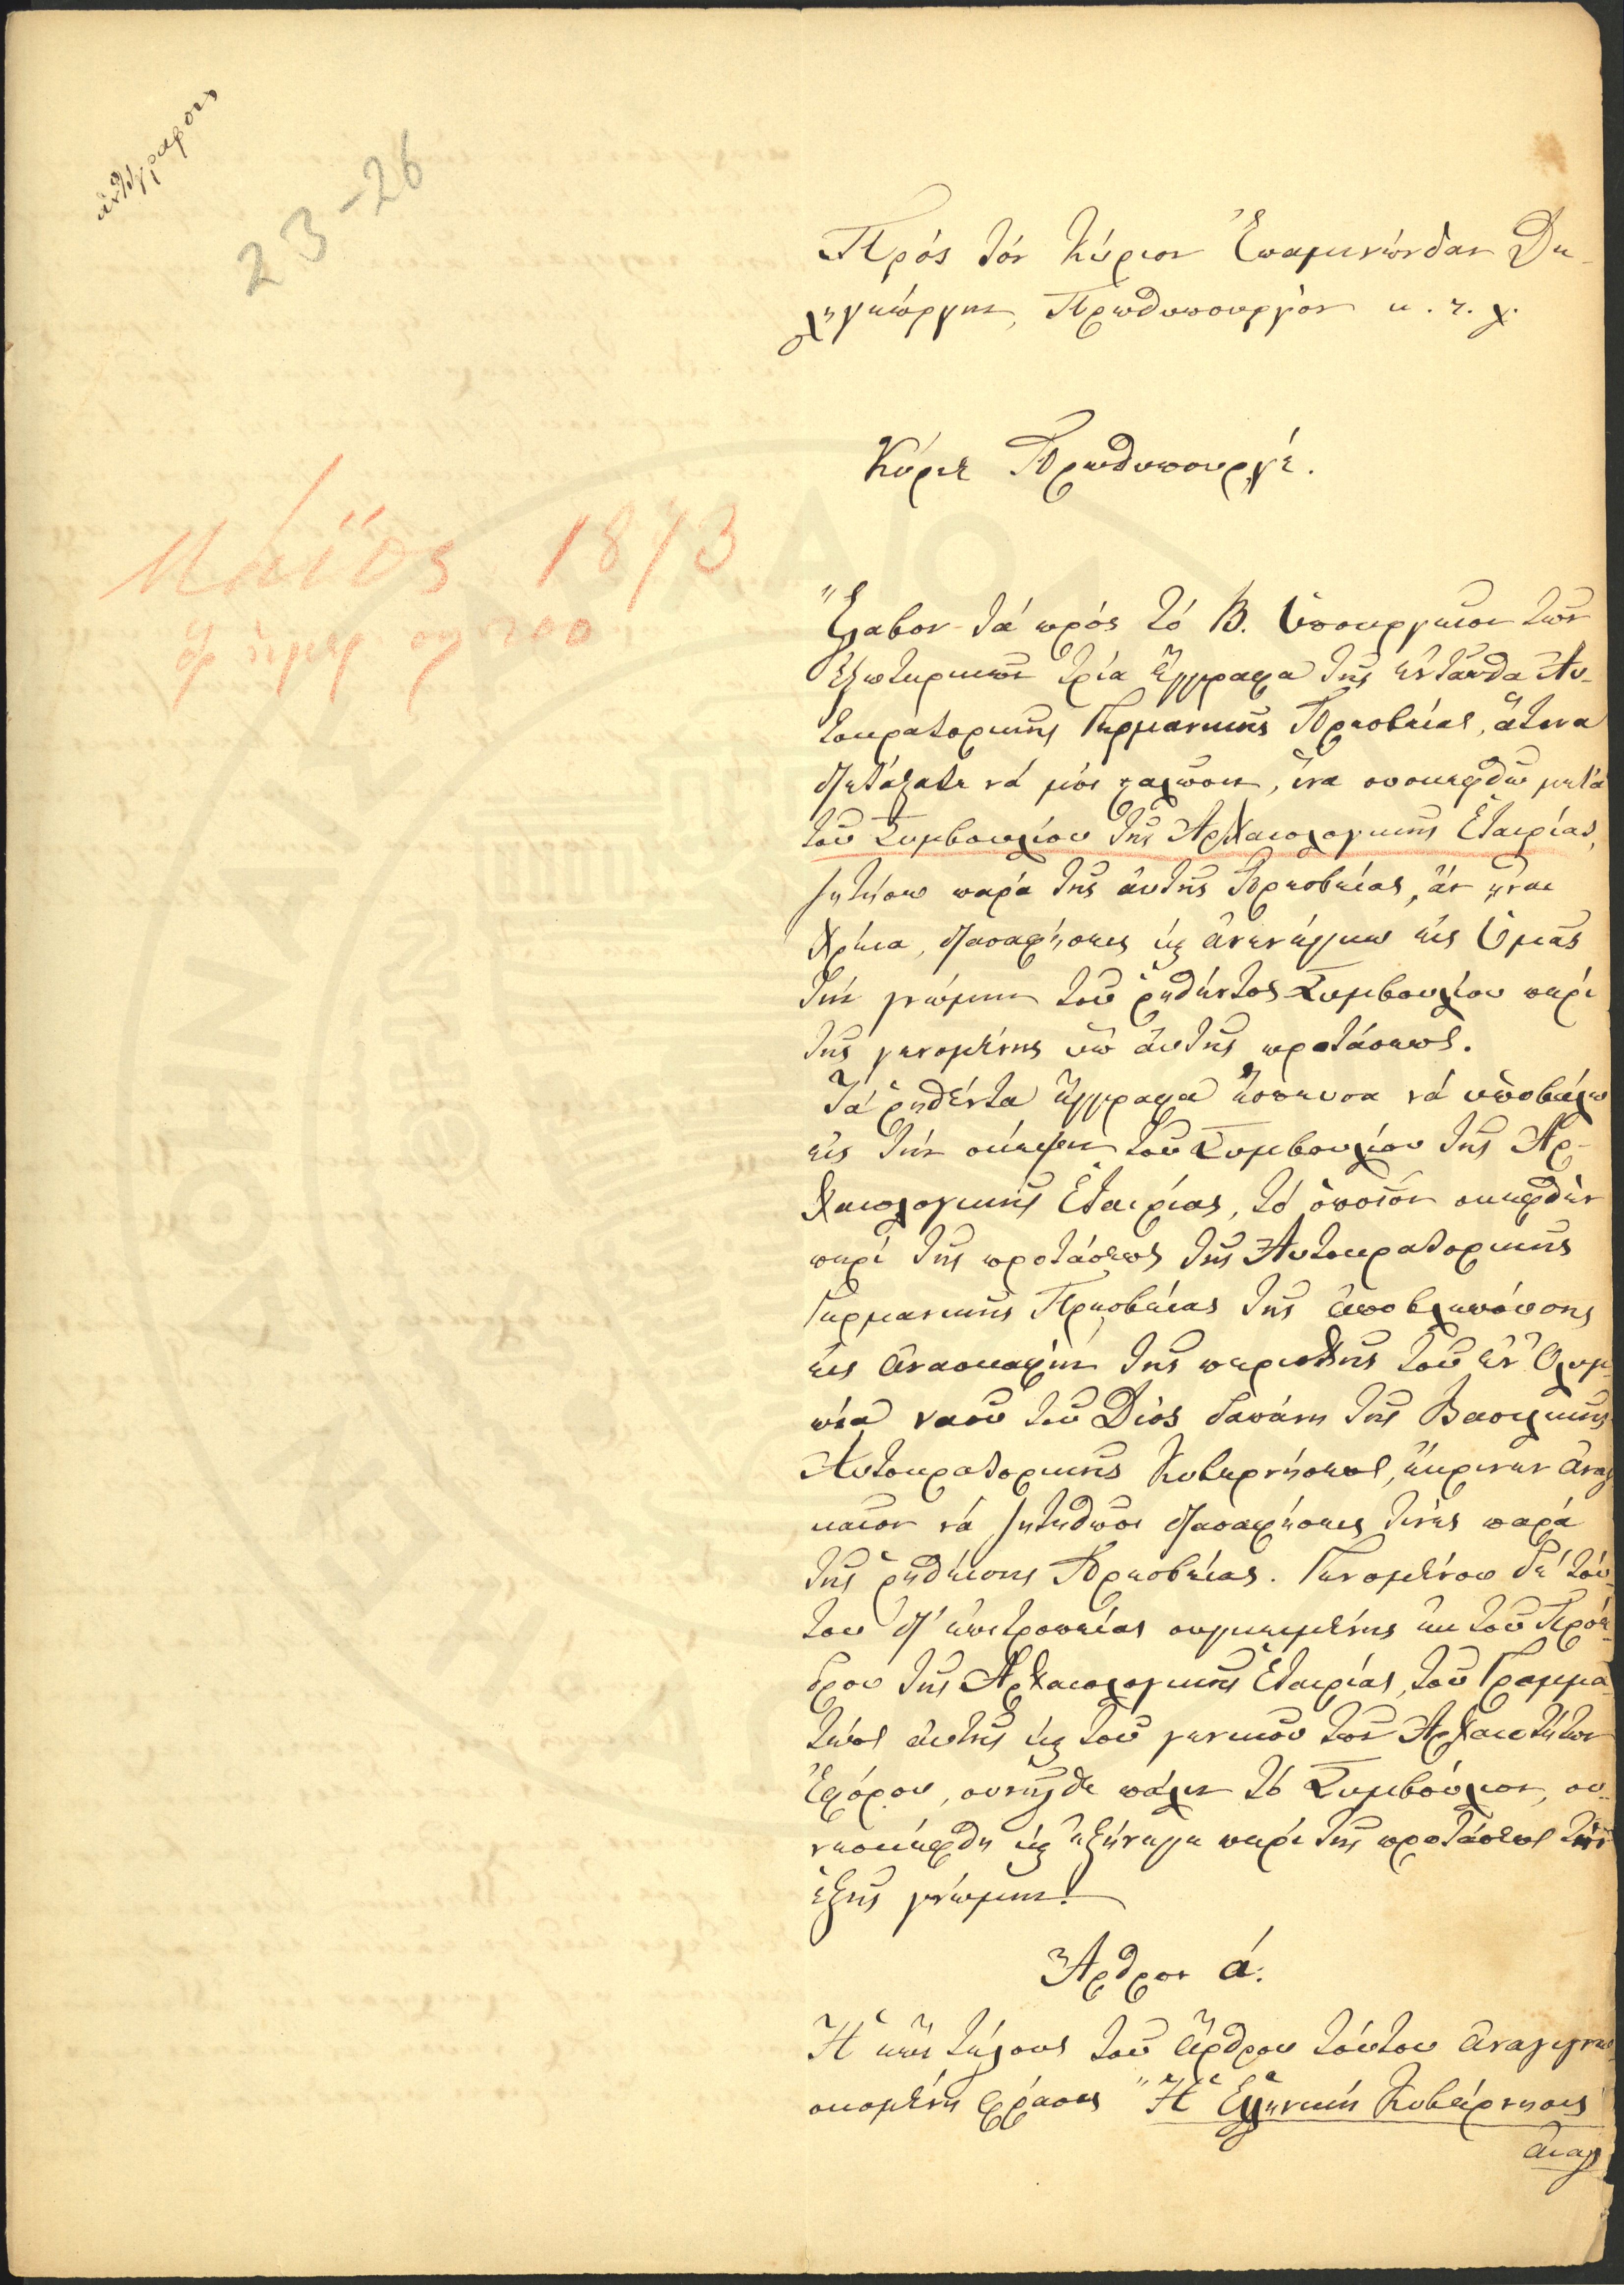 ἀντίγραφον
23-26
Πρὸς τὸν Κύριον Ἐπαμινώνδαν Δε-
ληγεώργην, Πρωθυπουργὸν κ. τ. λ.
Κύριε Πρωθυπουργέ.
Μάϊος 1873
Ἔλαβον τά πρός τό Β. Ὑπουργεῖον τῶν
Ἐξωτερικῶν τρία ἔγγραφα τῆς ἐνταῦθα Αὐ-
τοκρατορικῆς Γερμανικῆς Πρεσβείας, ἅτινα
διετάξατε νά μοι δηλώσουν, ἵνα συσκεφθῶ μετά
τοῦ Συμβουλίου τῆς Ἀρχαιολογικῆς Ἑταιρίας,
ζητήσω παρά τῆς αὐτῆς Πρεσβείας, ἄν ᾖναι
χρεία, διασαφήσεις καὶ ἀνενέγκω εἰς Ὑμᾶς
τήν γνώμην τοῦ ῥηθέντος Συμβουλίου περί
τῆς γενομένης ὑπ' αὐτῆς προτάσεως.
Τά ῥηθέντα ἔγγραφα ἔσπευσα νά ὑποβάλω
εἰς τήν σκέψιν τοῦ Συμβουλίου τῆς Ἀρ-
χαιολογικῆς Ἑταιρίας, τό ὁποῖον σκεφθέν
περί τῆς προτάσεως τῆς Αὐτοκρατορικῆς
Γερμανικῆς Πρεσβείας τῆς ἀποβλεπούσης
εἰς ἀνασκαφήν τῆς περιοχῆς τοῦ ἐν Ὀλυμ-
πίᾳ ναοῦ τοῦ Διός δαπάνῃ τῆς Βασιλικῆς
Αὐτοκρατορικῆς Κυβερνήσεως, ἔκρινεν ἀναγ
καῖον νά ζητηθῶσι διασαφήσεις τινές παρά
τῆς ῥηθείσης Πρεσβείας. Γενομένου δέ τού-
του δι' ἐπιτροπείας συγκειμένης ἐκ τοῦ Προέ-
δρου τῆς Ἀρχαιολογικῆς Ἑταιρίας, τοῦ Γραμμα-
τέως αὐτῆς καὶ τοῦ γενικοῦ τῶν Ἀρχαιοτήτων
Ἐφόρου, συνῆλθε πάλιν τό Συμβούλιον, συ-
νεσκέφθη καὶ ἐξήνεγκε περί τῆς προτάσεως τήν
ἑξῆς γνώμην.
Ἄρθρον ά.
Ἡ ἐπί τέλους τοῦ ἄρθρου τούτου ἀναγιγνω-
σκομένη φράσις "Ἡ Ἑλληνική Κυβέρνησις
ἀναλ